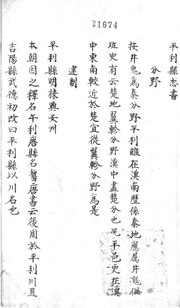 21674
平利縣志書
分野
按井鬼爲秦分野平利雖在漢南歷係秦地應屬井鬼偏
班史有云楚地翼軫分野漢中盡楚分也况平邑更在漢
中東南較近於楚宜從翼軫分野爲是
建制
平利縣明棣興安州
本朝因之釋名平利唐縣名舊唐書云後周於平利川置
吉陽縣武德初改曰平利縣以川名也